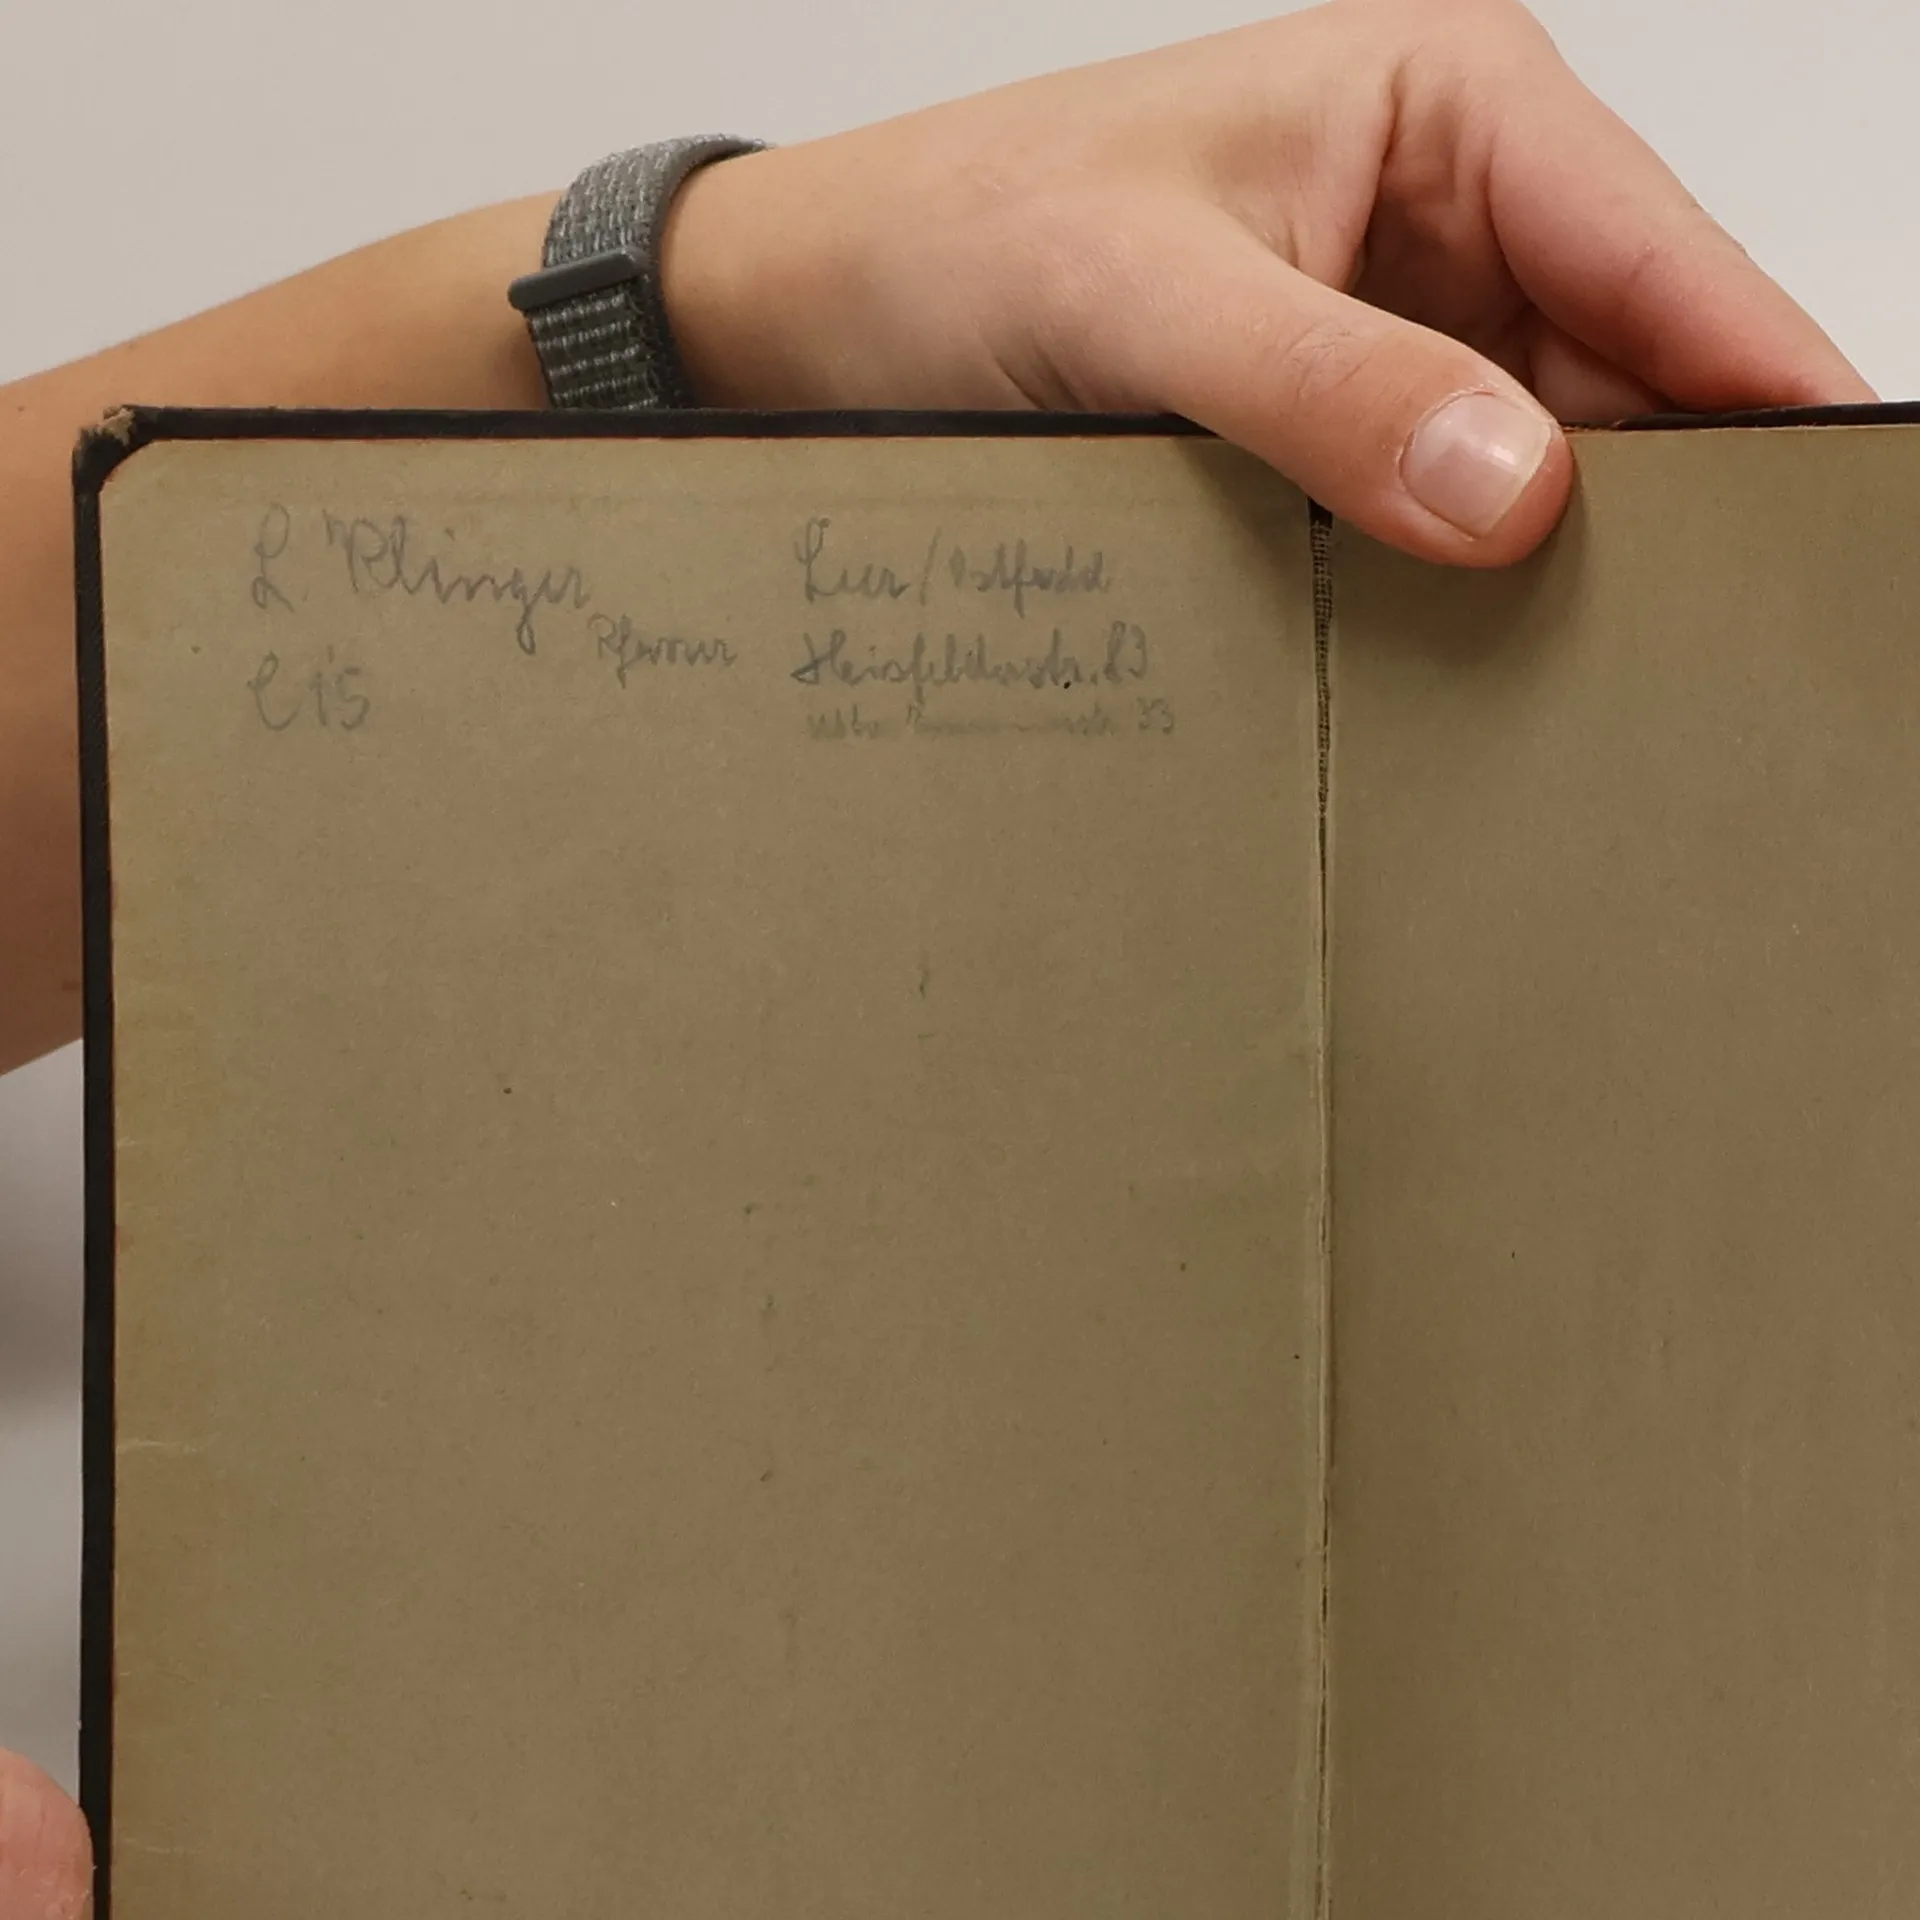 L. Klinger
Pfarrer
C 15
Leer / Ostfriesld
Heisfelderstr. 83
33